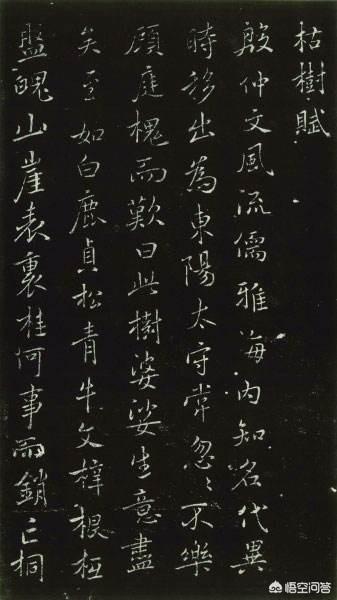 枯樹賦
殷仲文風流儒雅海內知名代異
時移出為東陽太守常忽〻不樂
顧庭槐而歎曰此樹婆娑生意盡
矣至如白鹿貞松青牛文梓根柢
盤魄山崖表裏桂何事而銷亡桐
悟空问答